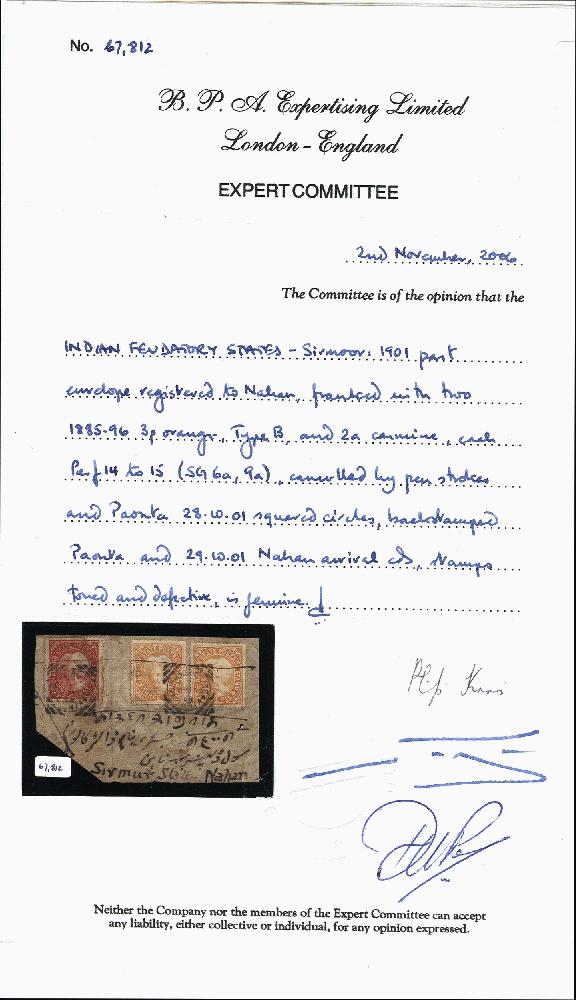 No. 67,812
B. P. A. Expertising Limited
London - England
EXPERT COMMITTEE
2nd November, 2006
The Committee is of the opinion that the
INDIAN FEUDATORY STATES - Sirmoor: 1901 part
envelope registered to Nahan, franked with two
1885-96 3p orange, Type B, and 2a carmine, each
Perf 14 to 15 (SG 6a, 9a), cancelled by pen strokes
and Paonta 28.10.01 squared circles, backstamped
Paonta and 29.10.01 Nahan arrival cds, stamps
toned and defective, is genuine.
67,812
Sirmur State Nahan
Neither the Company nor the members of the Expert Committee can accept
any liability, either collective or individual, for any opinion expressed.